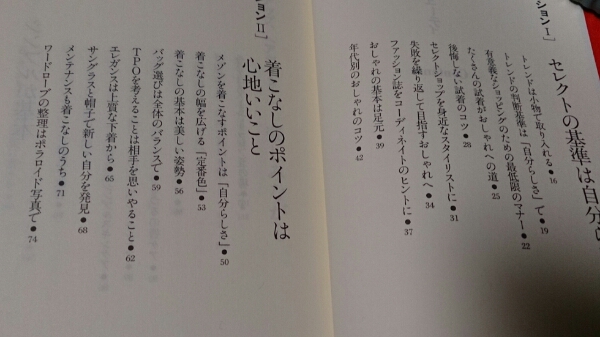 ション Ⅰ］
セレクトの基準は自分
トレンドは小物で取り入れる●16
トレンドの判断基準は「自分らしさ」で●19
有意義なショッピングのための最低限のマナー●22
たくさんの試着がおしゃれへの道●25
後悔しない試着のコツ●28
セレクトショップを身近なスタイリストに●31
失敗を繰り返して目指すおしゃれへ●34
ファッション誌をコーディネイトのヒントに●37
おしゃれの基本は足元●39
年代別のおしゃれのコツ●42
ション Ⅱ］
着こなしのポイントは
心地いいこと
メゾンを着こなすポイントは「自分らしさ」●50
着こなしの幅を広げる「定番色」●53
着こなしの基本は美しい姿勢●56
バッグ選びは全体のバランスで●59
TPOを考えることは相手を思いやること●62
エレガンスは上質な下着から●65
サングラスと帽子で新しい自分を発見●68
メンテナンスも着こなしのうち●71
ワードローブの整理はポラロイド写真で●74